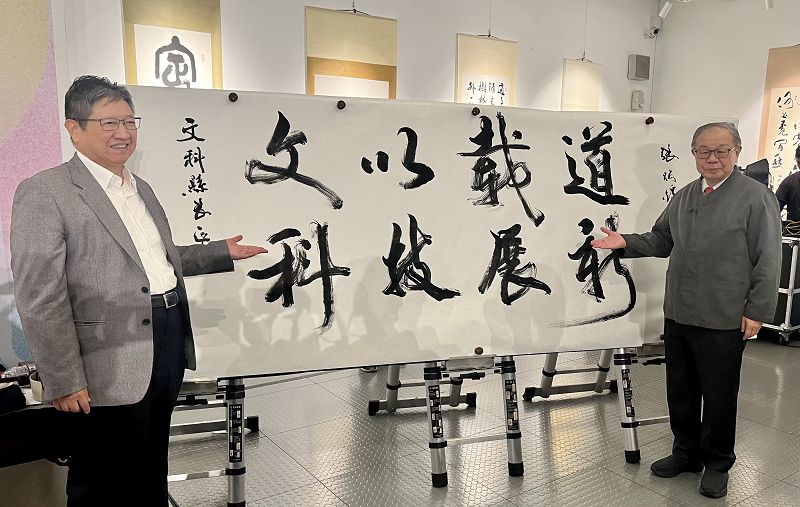 文科縣長正
文以載道
科技展新
張炳煌